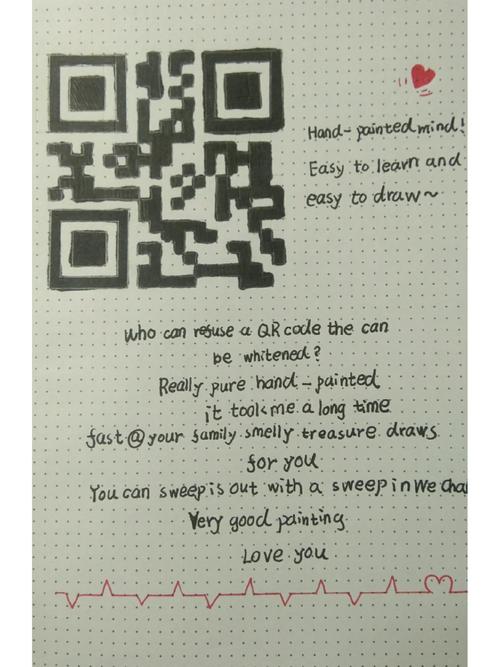 Hand-painted mind!
Easy to learn and
easy to draw~
Who can refuse a QR code the can
be whitened?
Really pure hand-painted
it took me a long time
fast@your family smelly treasure draws
for you
You can sweep is out with a sweep in We Cha
Very good painting
Love you